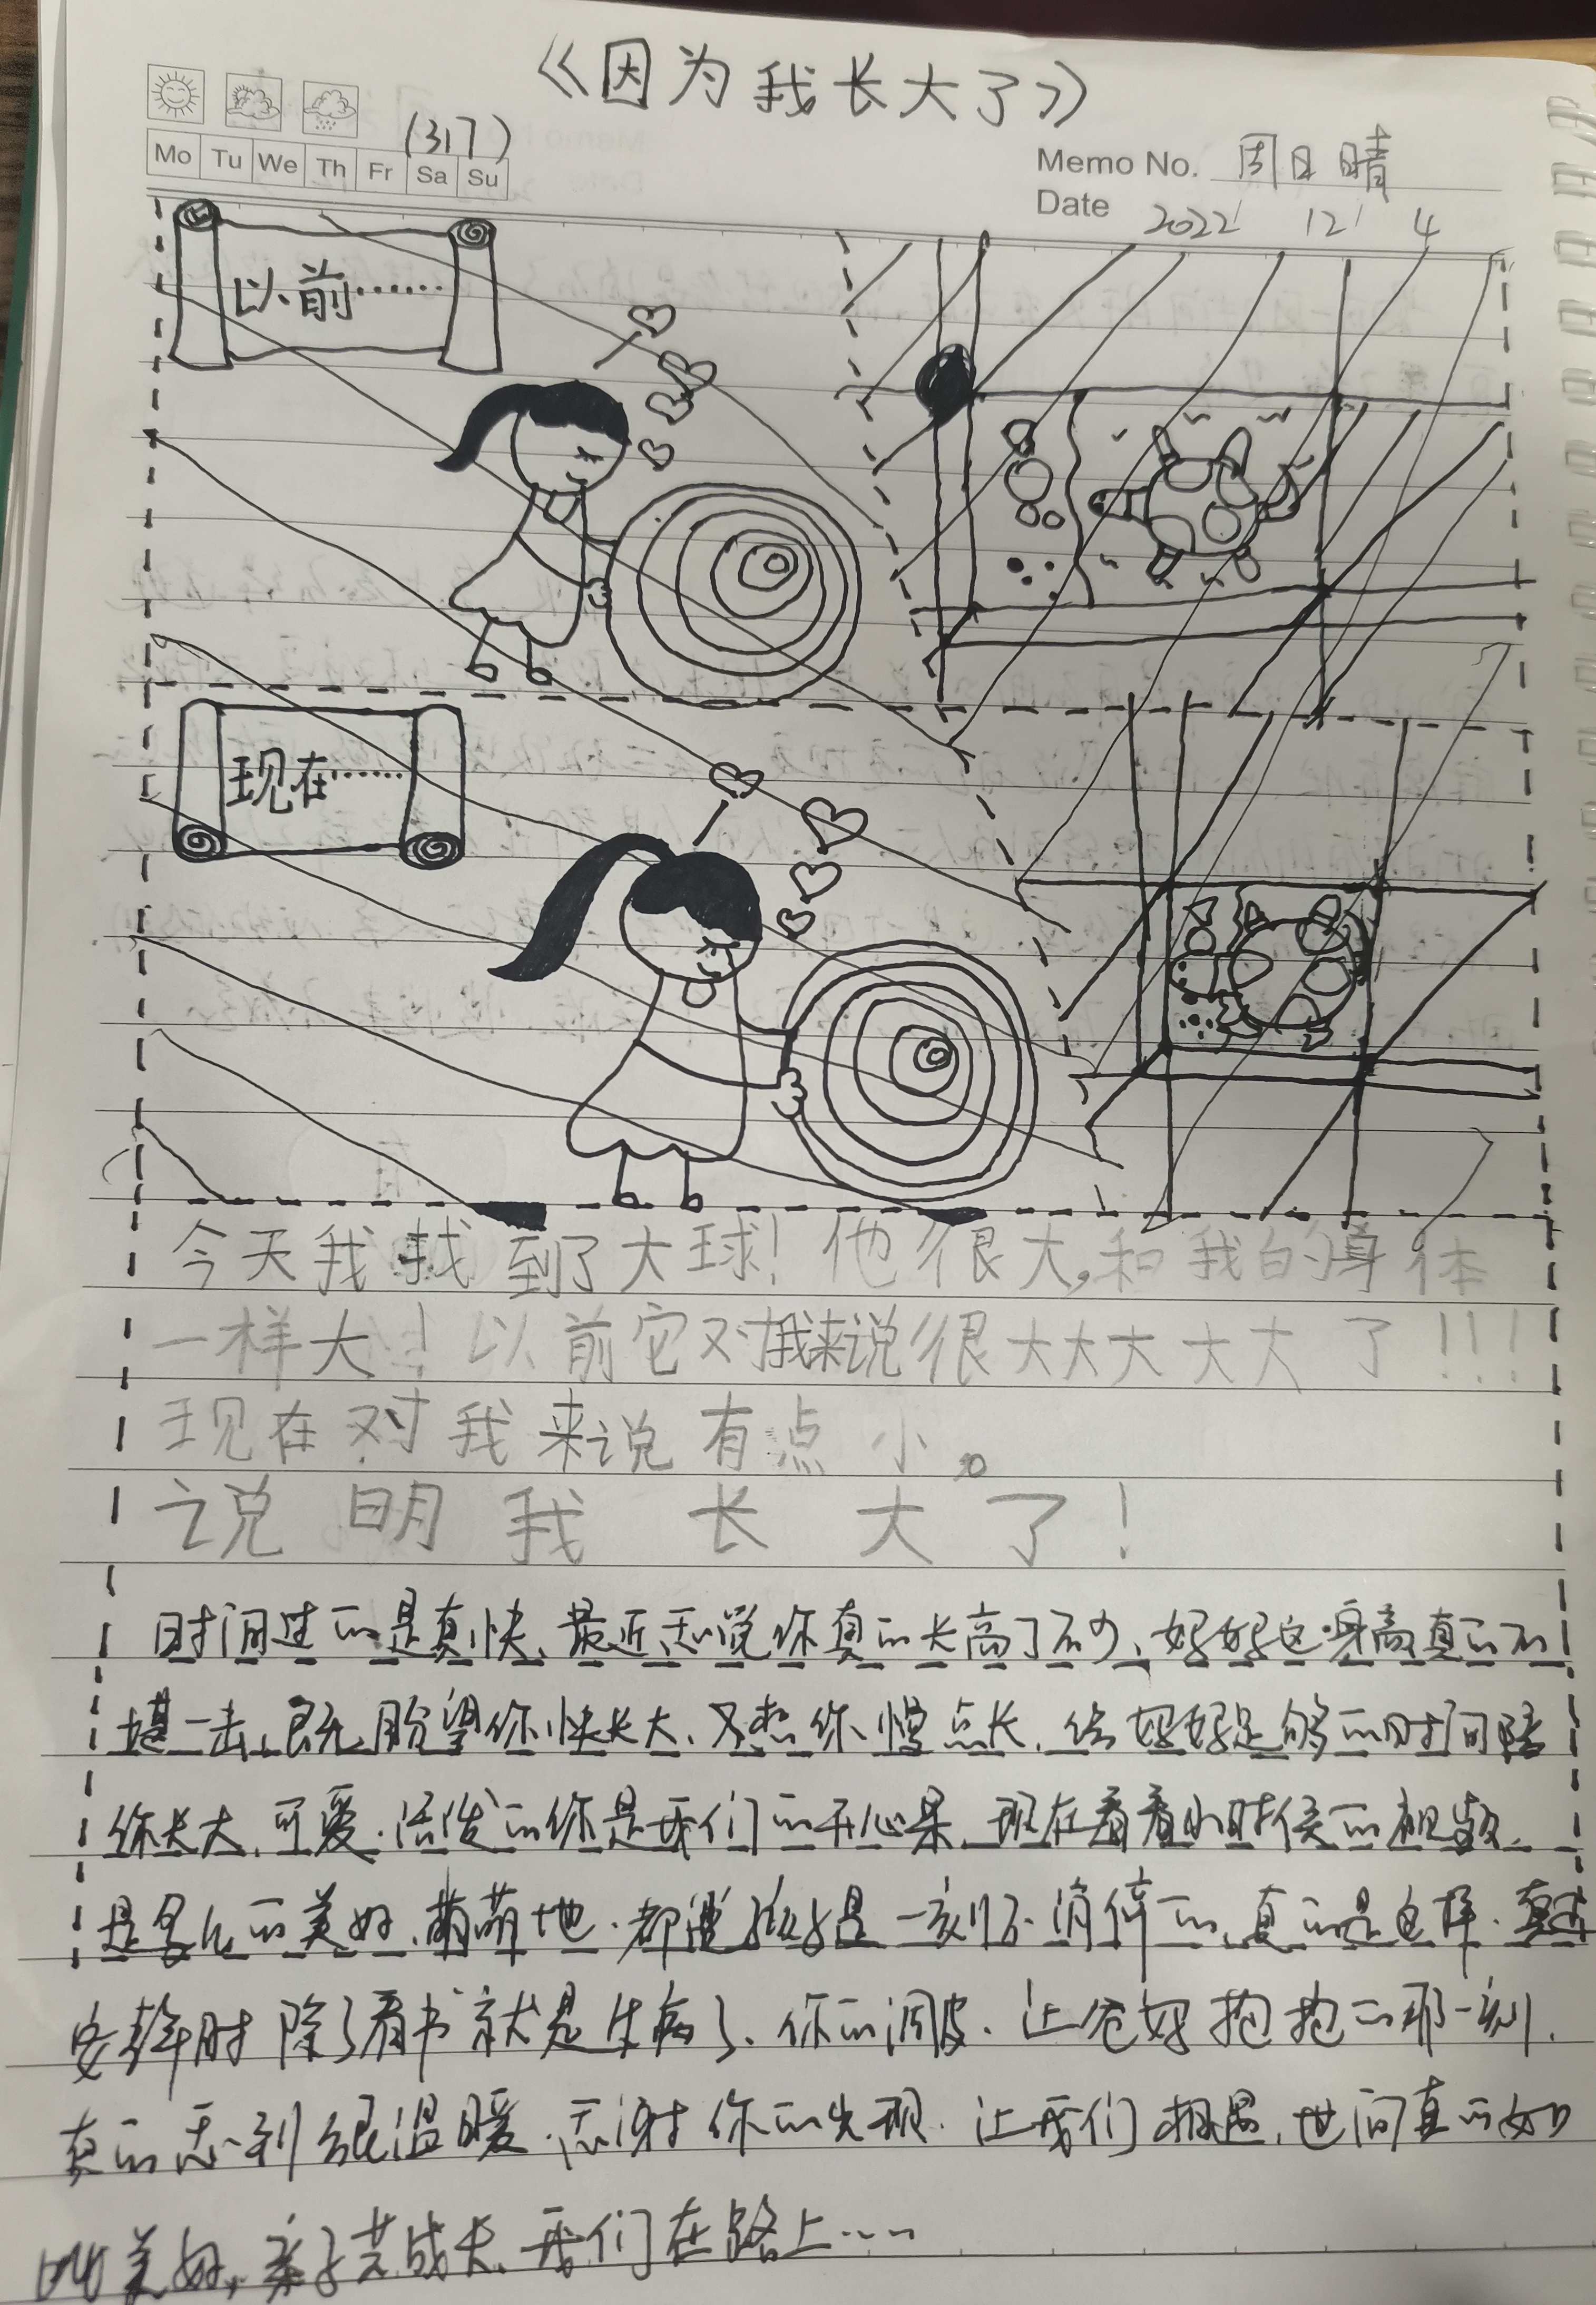 《因为我长大了》
(317)
Mo Tu We Th Fr Sa Su
Memo No. 周日晴
Date 2022 12 4
以前……
现在……
今天我找到了大球！他很大,和我的身体
一样大！以前它对我来说很大大大大大了！！！
现在对我来说有点小。
说明我长大了！
时间过的是真快、最近感觉你真的长高了不少、妈妈这身高真的不
堪一击、既盼望你快长大、又想你慢点长、给妈妈足够的时间陪
你长大、可爱、活泼的你是我们的开心果、现在看看小时候的视频、
是多么的美好、萌萌地、都说孩子是一刻不消停的、真的是这样、
安静时除了看书就是生病了、你的调皮、让爸妈抱抱的那一刻、
真的感到很温暖、感谢你的出现、让我们相遇、世间真的如
此美好，亲子共成长、我们在路上……